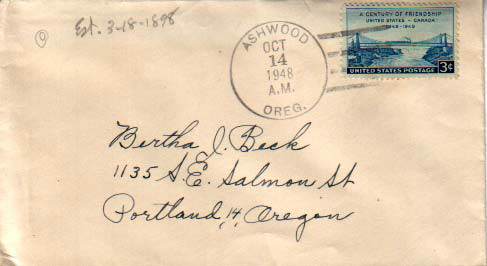 Est. 3-18-1898
ASHWOOD
OCT
14
1948
A.M.
OREG.
A CENTURY OF FRIENDSHIP
UNITED STATES - CANADA
1848-1948
UNITED STATES POSTAGE 3¢
Bertha J. Beck
1135 S.E. Salmon St
Portland, 14, Oregon